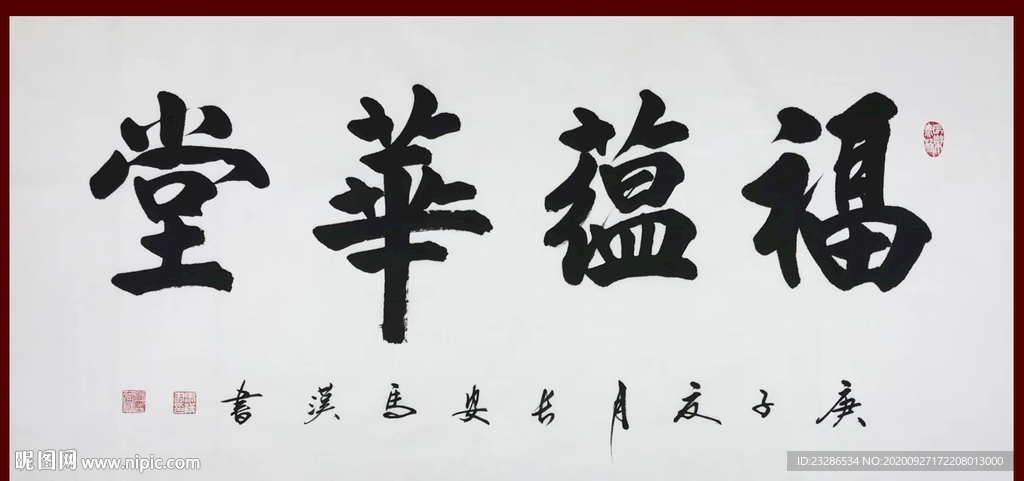 福蕴華堂
庚子夏月长安馬漢書
昵图网 www.nipic.com
ID:23286534 NO:20200927172208013000